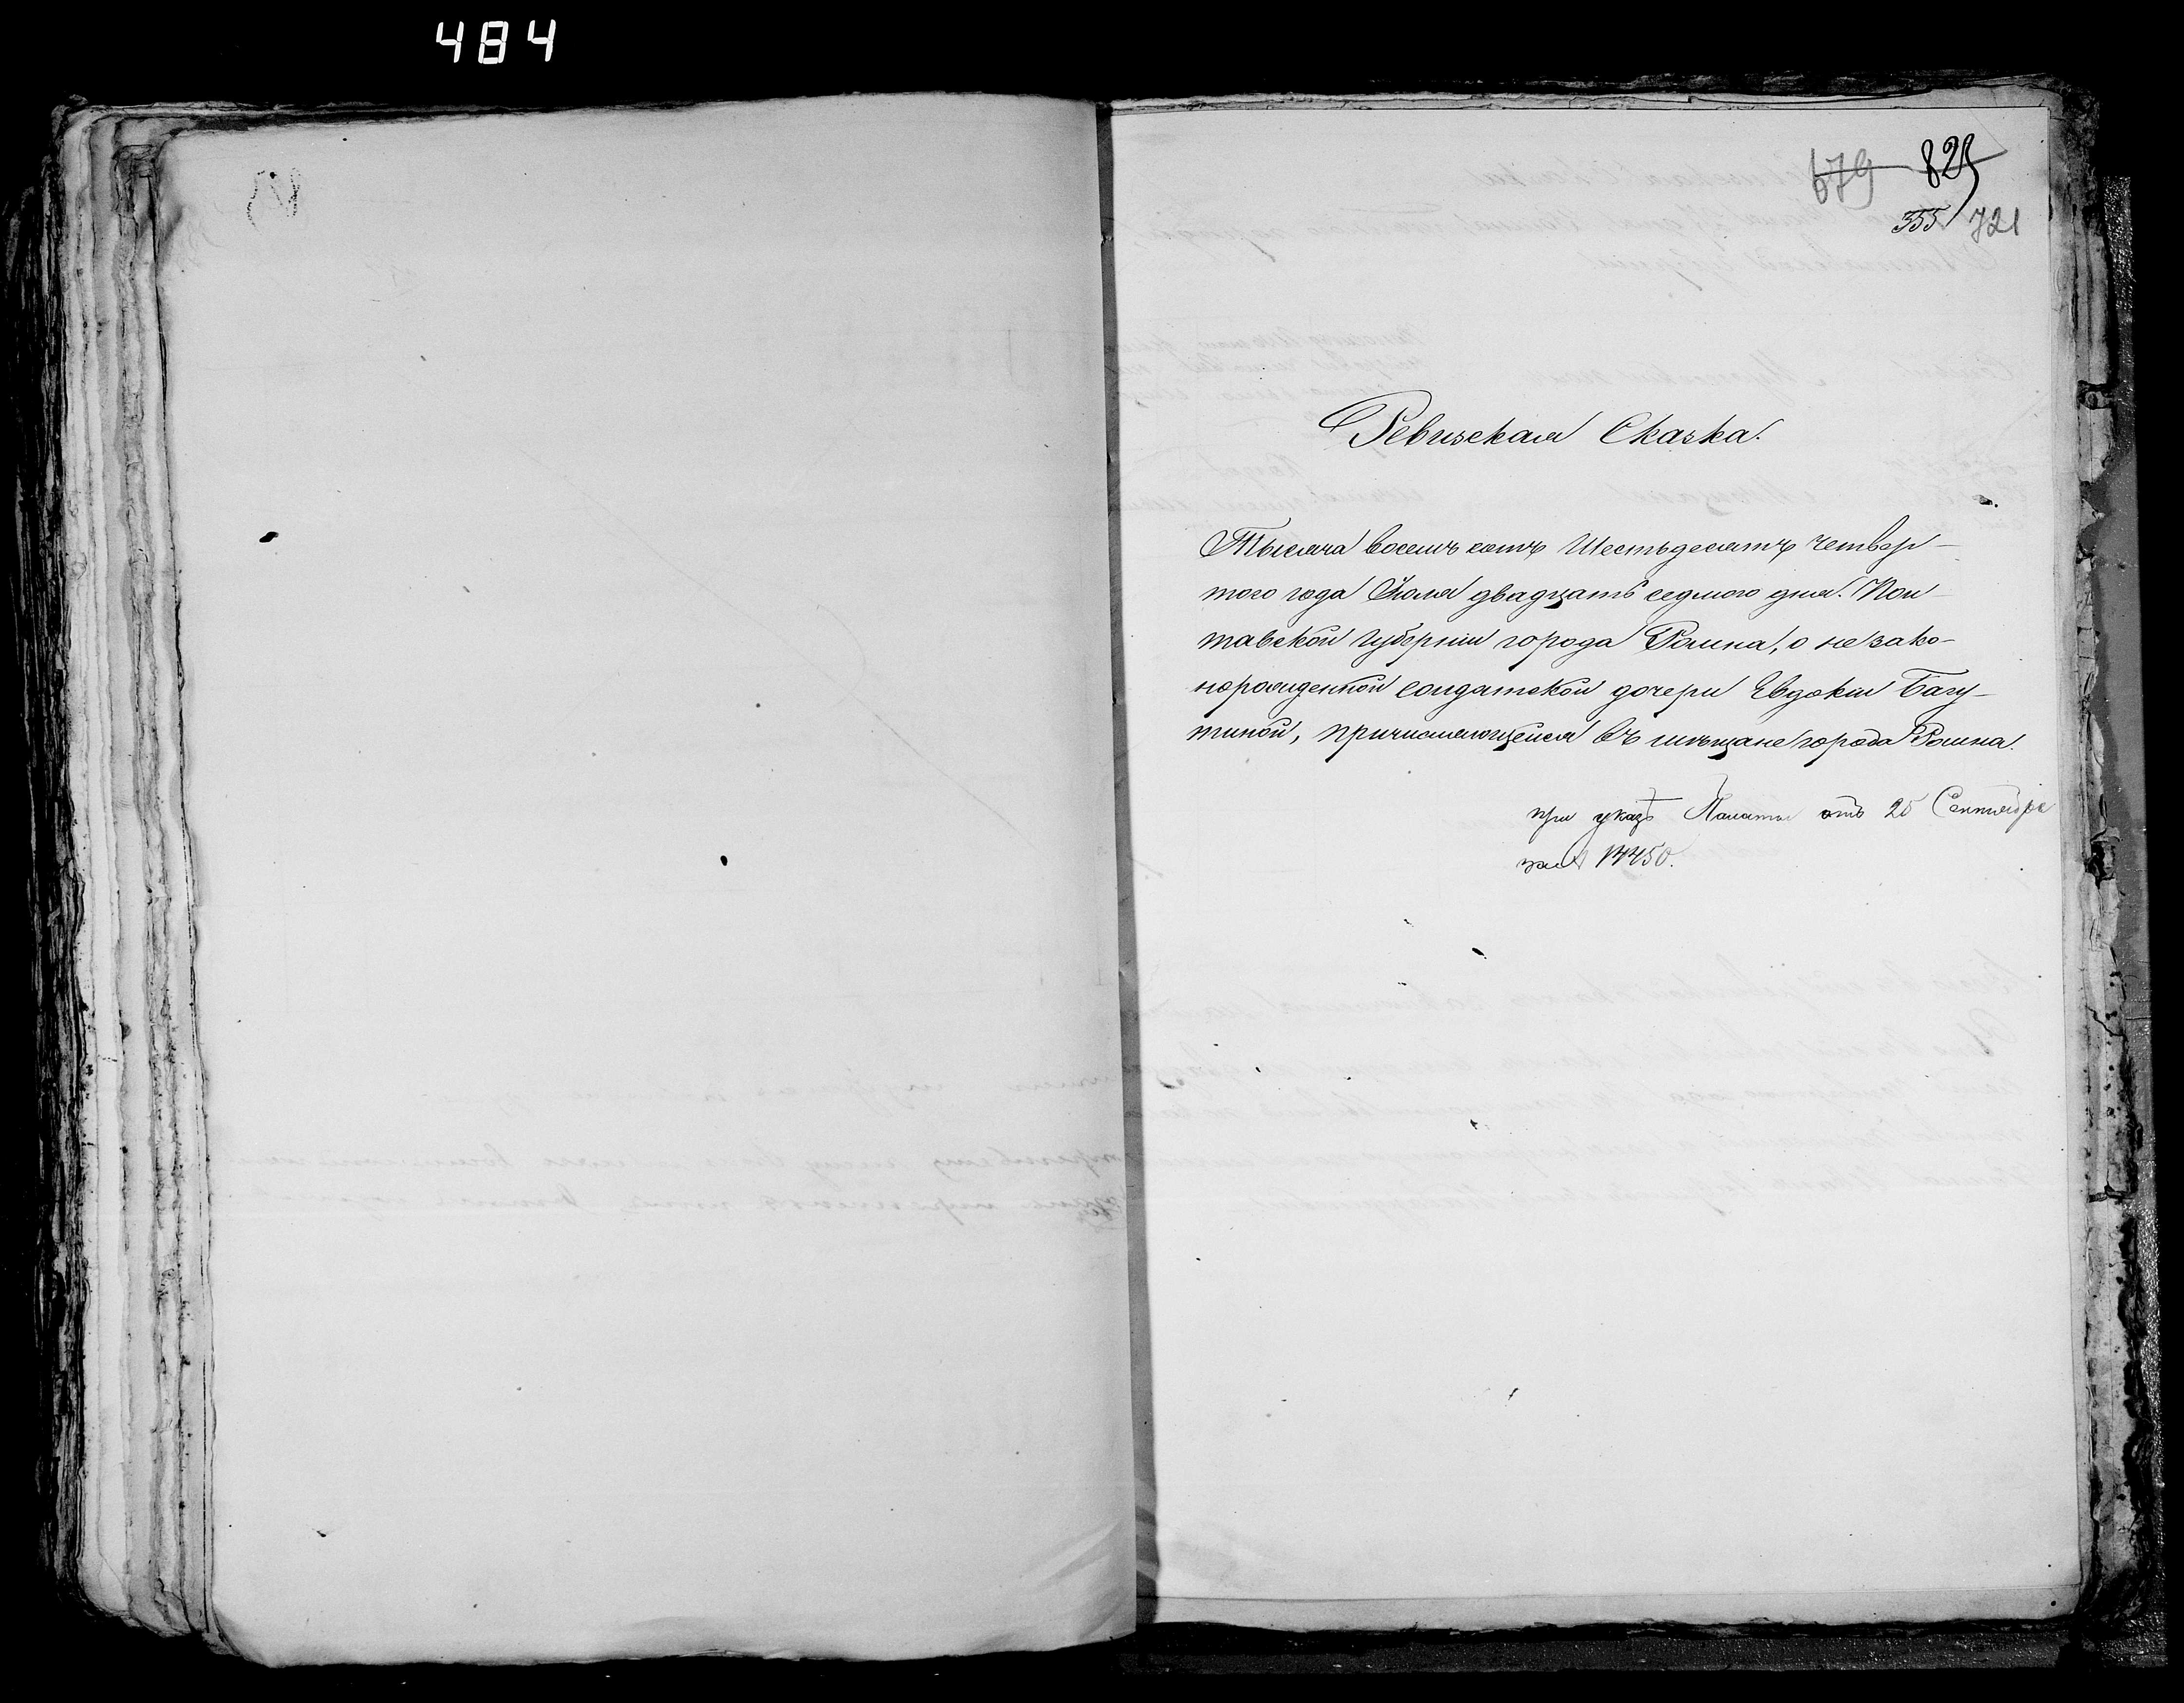 484
679 825
355 721
Ревизская Сказка.
Тысяча восемь сотъ Шестьдесятъ четвер-
того года Июля двадцать седмого дня. Пол
тавской губерніи города Ромна, о незако-
норожденной солдатской дочери Евдокіи Багу-
тиной, причисляющейся въ мѣщане города Ромна.
при указѣ Палаты отъ 25 Сентября
14450.